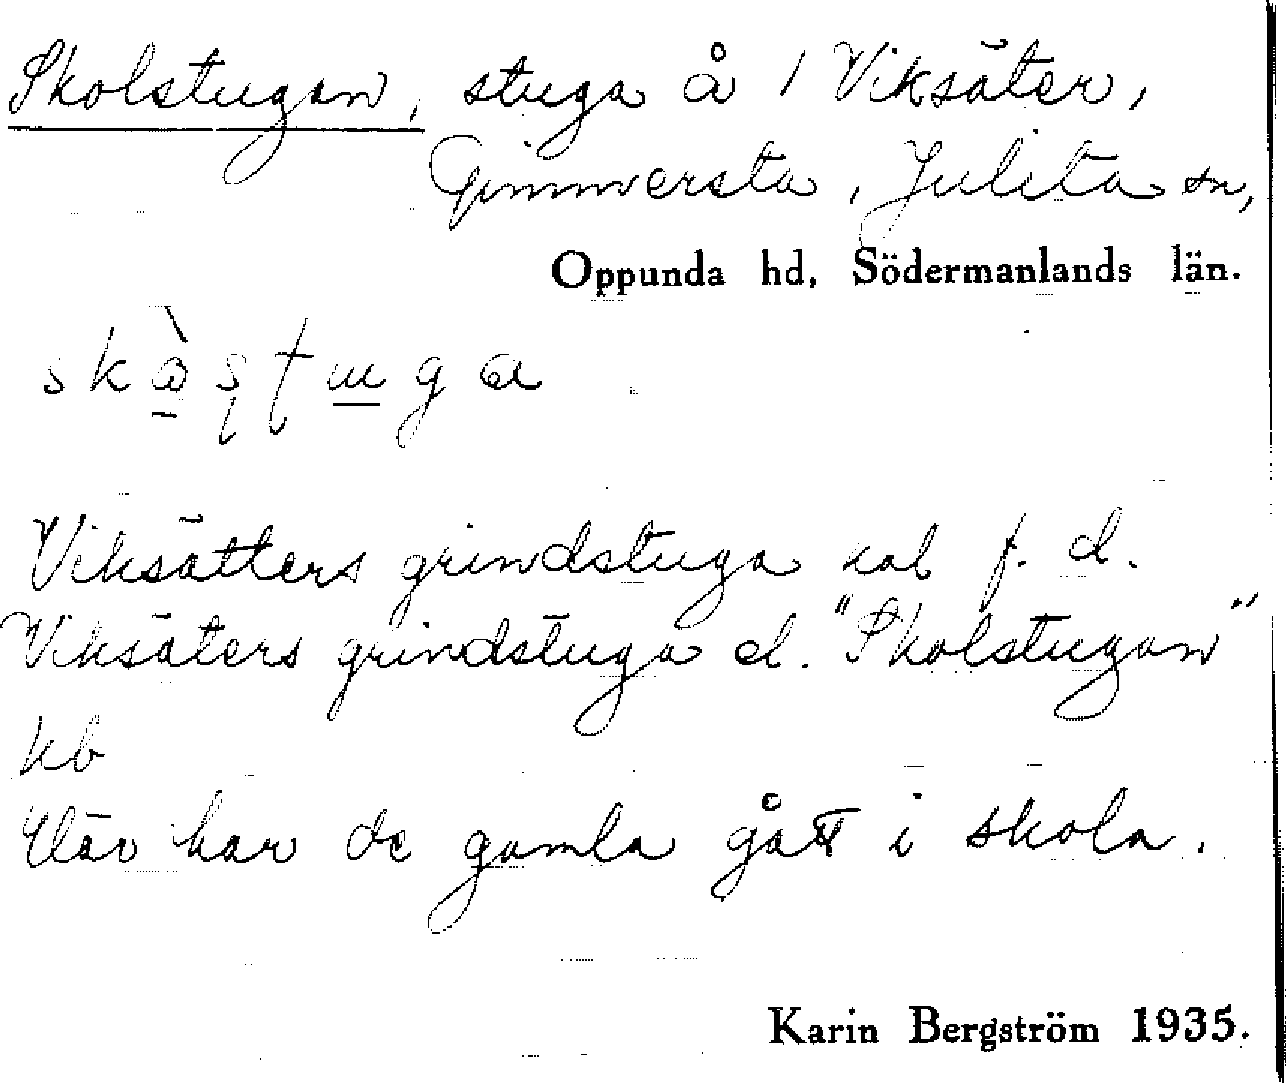 Skolstugan, stuga å 1 Viksäter,
Gimmersta, Julita sn,
Oppunda hd, Södermanlands län.
Viksätters grindstuga kal f. d.
Viksäters grindstuga el. "Skolstugan"
kb
Där har de gamla gått i skola.
Karin Bergström 1935.